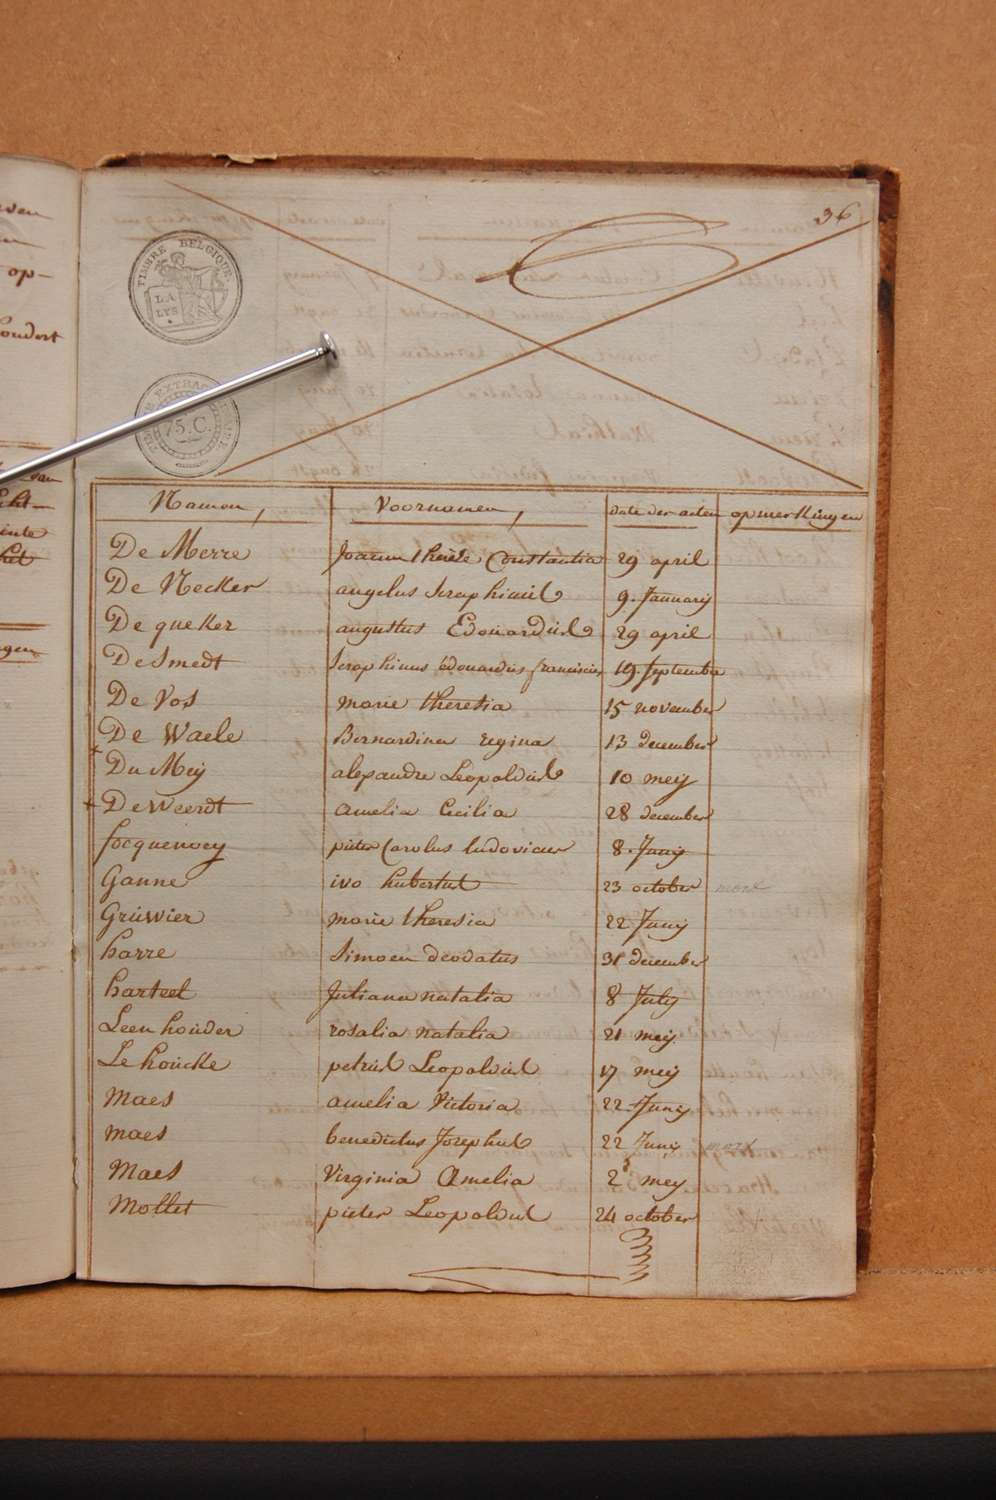 36
TIMBRE BELGIQUE
LA
LYS
75.C.
Namen, Voornamen, date der acten opmerkingen
De Merre Joanna therese Constantia 29 april
De Necker angelus Seraphinus 9. January
De queker augustus Edouardus 29 april
De Smedt Seraphinus edouardus franciscus 19. September
De Vos marie theresia 15 november
De Waele Bernardina regina 13 december
Du Meÿ alexandre Leopoldus 10 meÿ
De Weerdt amelia Cecilia 28 december
focquenoey pieter Carolus ludovicus 8. Junÿ
Ganne ivo hubertus 23 october mort
Grúwier marie theresia 22 Junÿ
harre Simoen deodatus 31 december
harteel Juliana natalia 8 July
Leenhoúder rosalia natalia 21 meÿ
Le hoúcke petrus Leopoldus 17 meÿ
maes amelia Victoria 22 Junÿ
maes benedictus Josephus 22 Junÿ mort
Maes Virginia Amelia 2 meÿ
Mollet pieter Leopoldus 24 october
op-